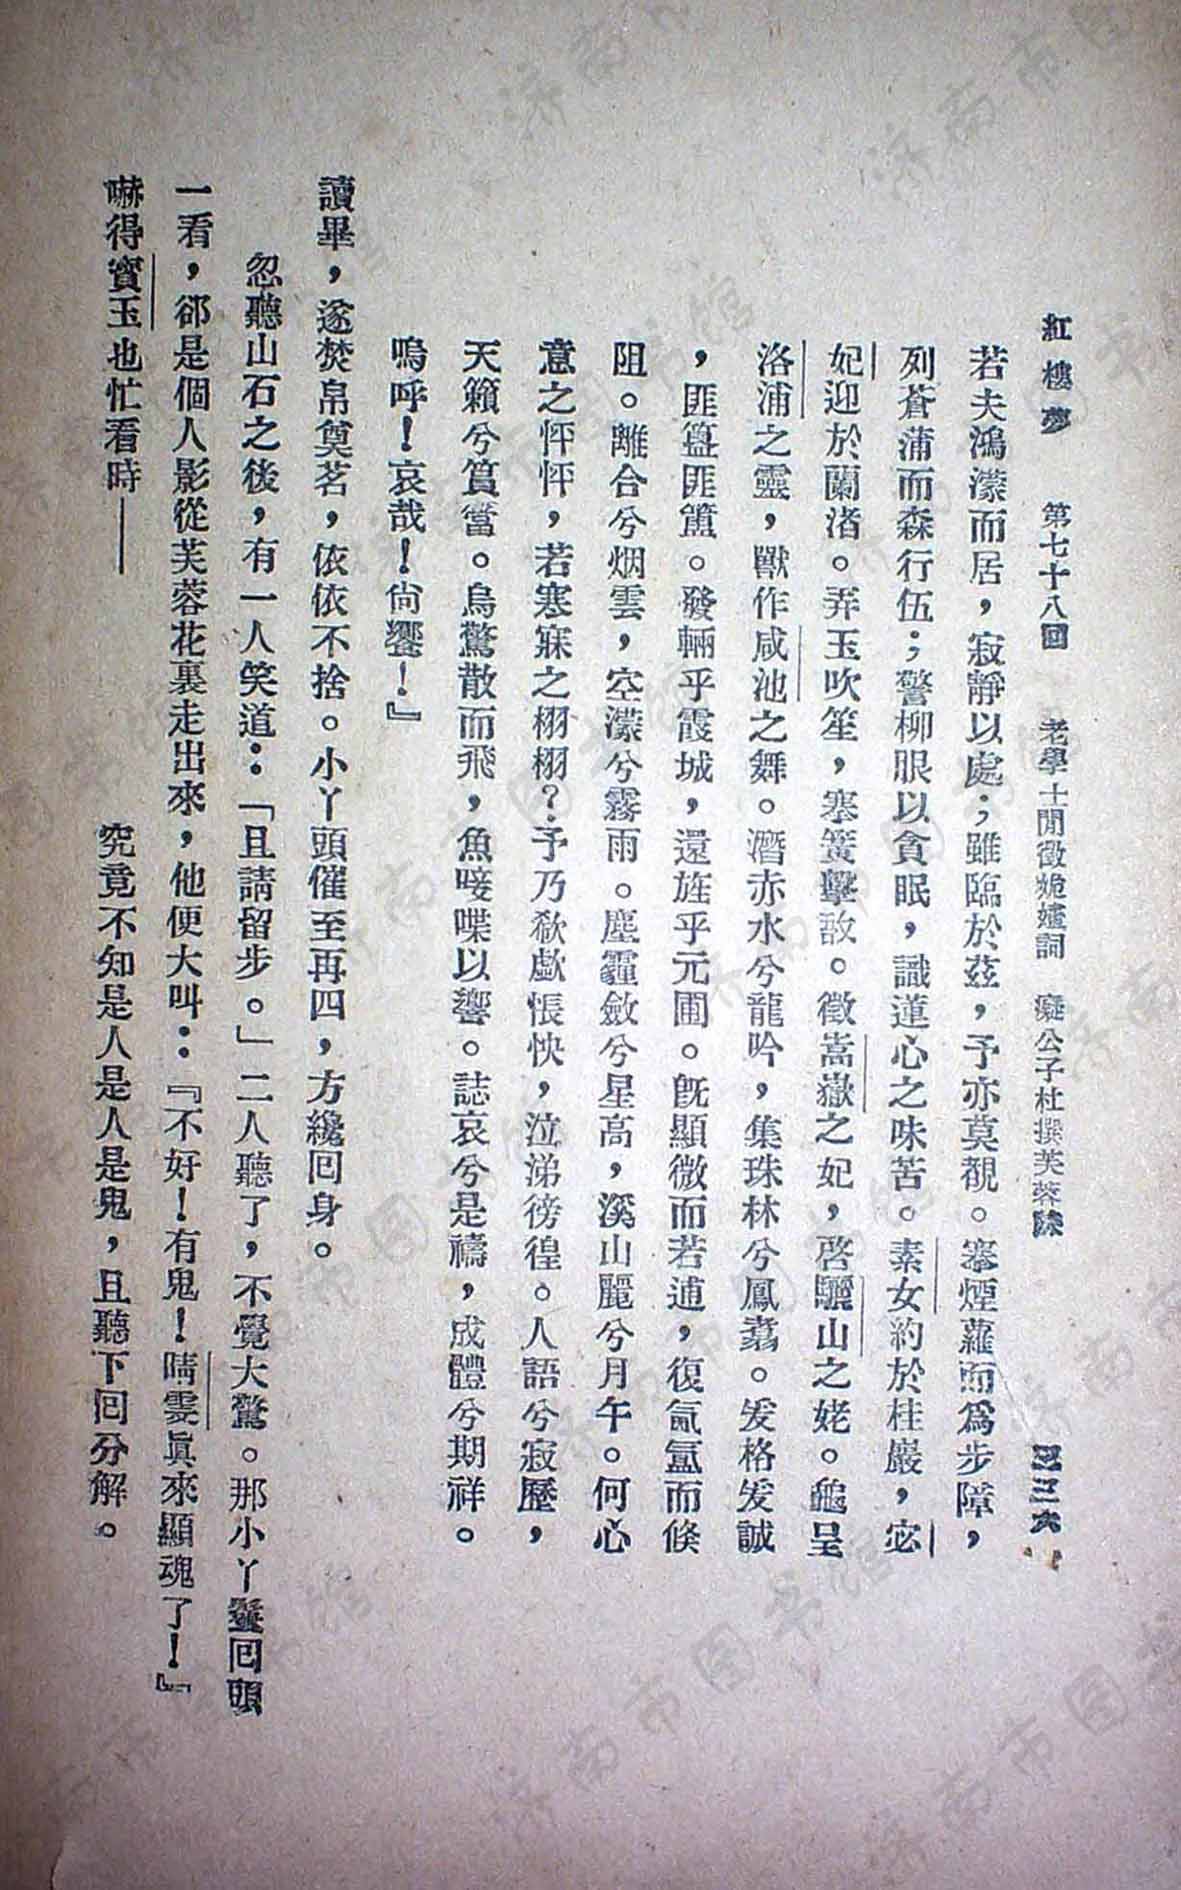 紅樓夢　第七十八回　老學士閒徵姽嫿詞　癡公子杜撰芙蓉誄　三三六
若夫鴻濛而居，寂靜以處；雖臨於茲，予亦莫覩。搴煙蘿而爲步障，
列蒼蒲而森行伍；警柳眼以貪眠，識蓮心之味苦。素女約於桂巖，宓
妃迎於蘭渚。弄玉吹笙，寒簧擊敔。徵嵩嶽之妃，啓驪山之姥。龜呈
洛浦之靈，獸作咸池之舞。潛赤水兮龍吟，集珠林兮鳳翥。爰格爰誠
，匪簠匪簋。發輛乎霞城，還旌乎元圃。旣顯微而若逋，復氤氳而倏
阻。離合兮烟雲，空濛兮霧雨。塵霾斂兮星高，溪山麗兮月午。何心
意之怦怦，若寒寐之栩栩？予乃欷歔悵怏，泣涕徬徨。人語兮寂歷，
天籟兮篔簹。鳥驚散而飛，魚唼喋以響。誌哀兮是禱，成禮兮期祥。
嗚呼！哀哉！尙饗！』
讀畢，遂焚帛奠茗，依依不捨。小丫頭催至再四，方纔回身。
忽聽山石之後，有一人笑道：「且請留步。」二人聽了，不覺大驚。那小丫鬟回頭
一看，郤是個人影從芙蓉花裏走出來，他便大叫：『不好！有鬼！晴雯眞來顯魂了！』
嚇得寳玉也忙看時——
究竟不知是人是人是鬼，且聽下回分解。
济南市图书馆